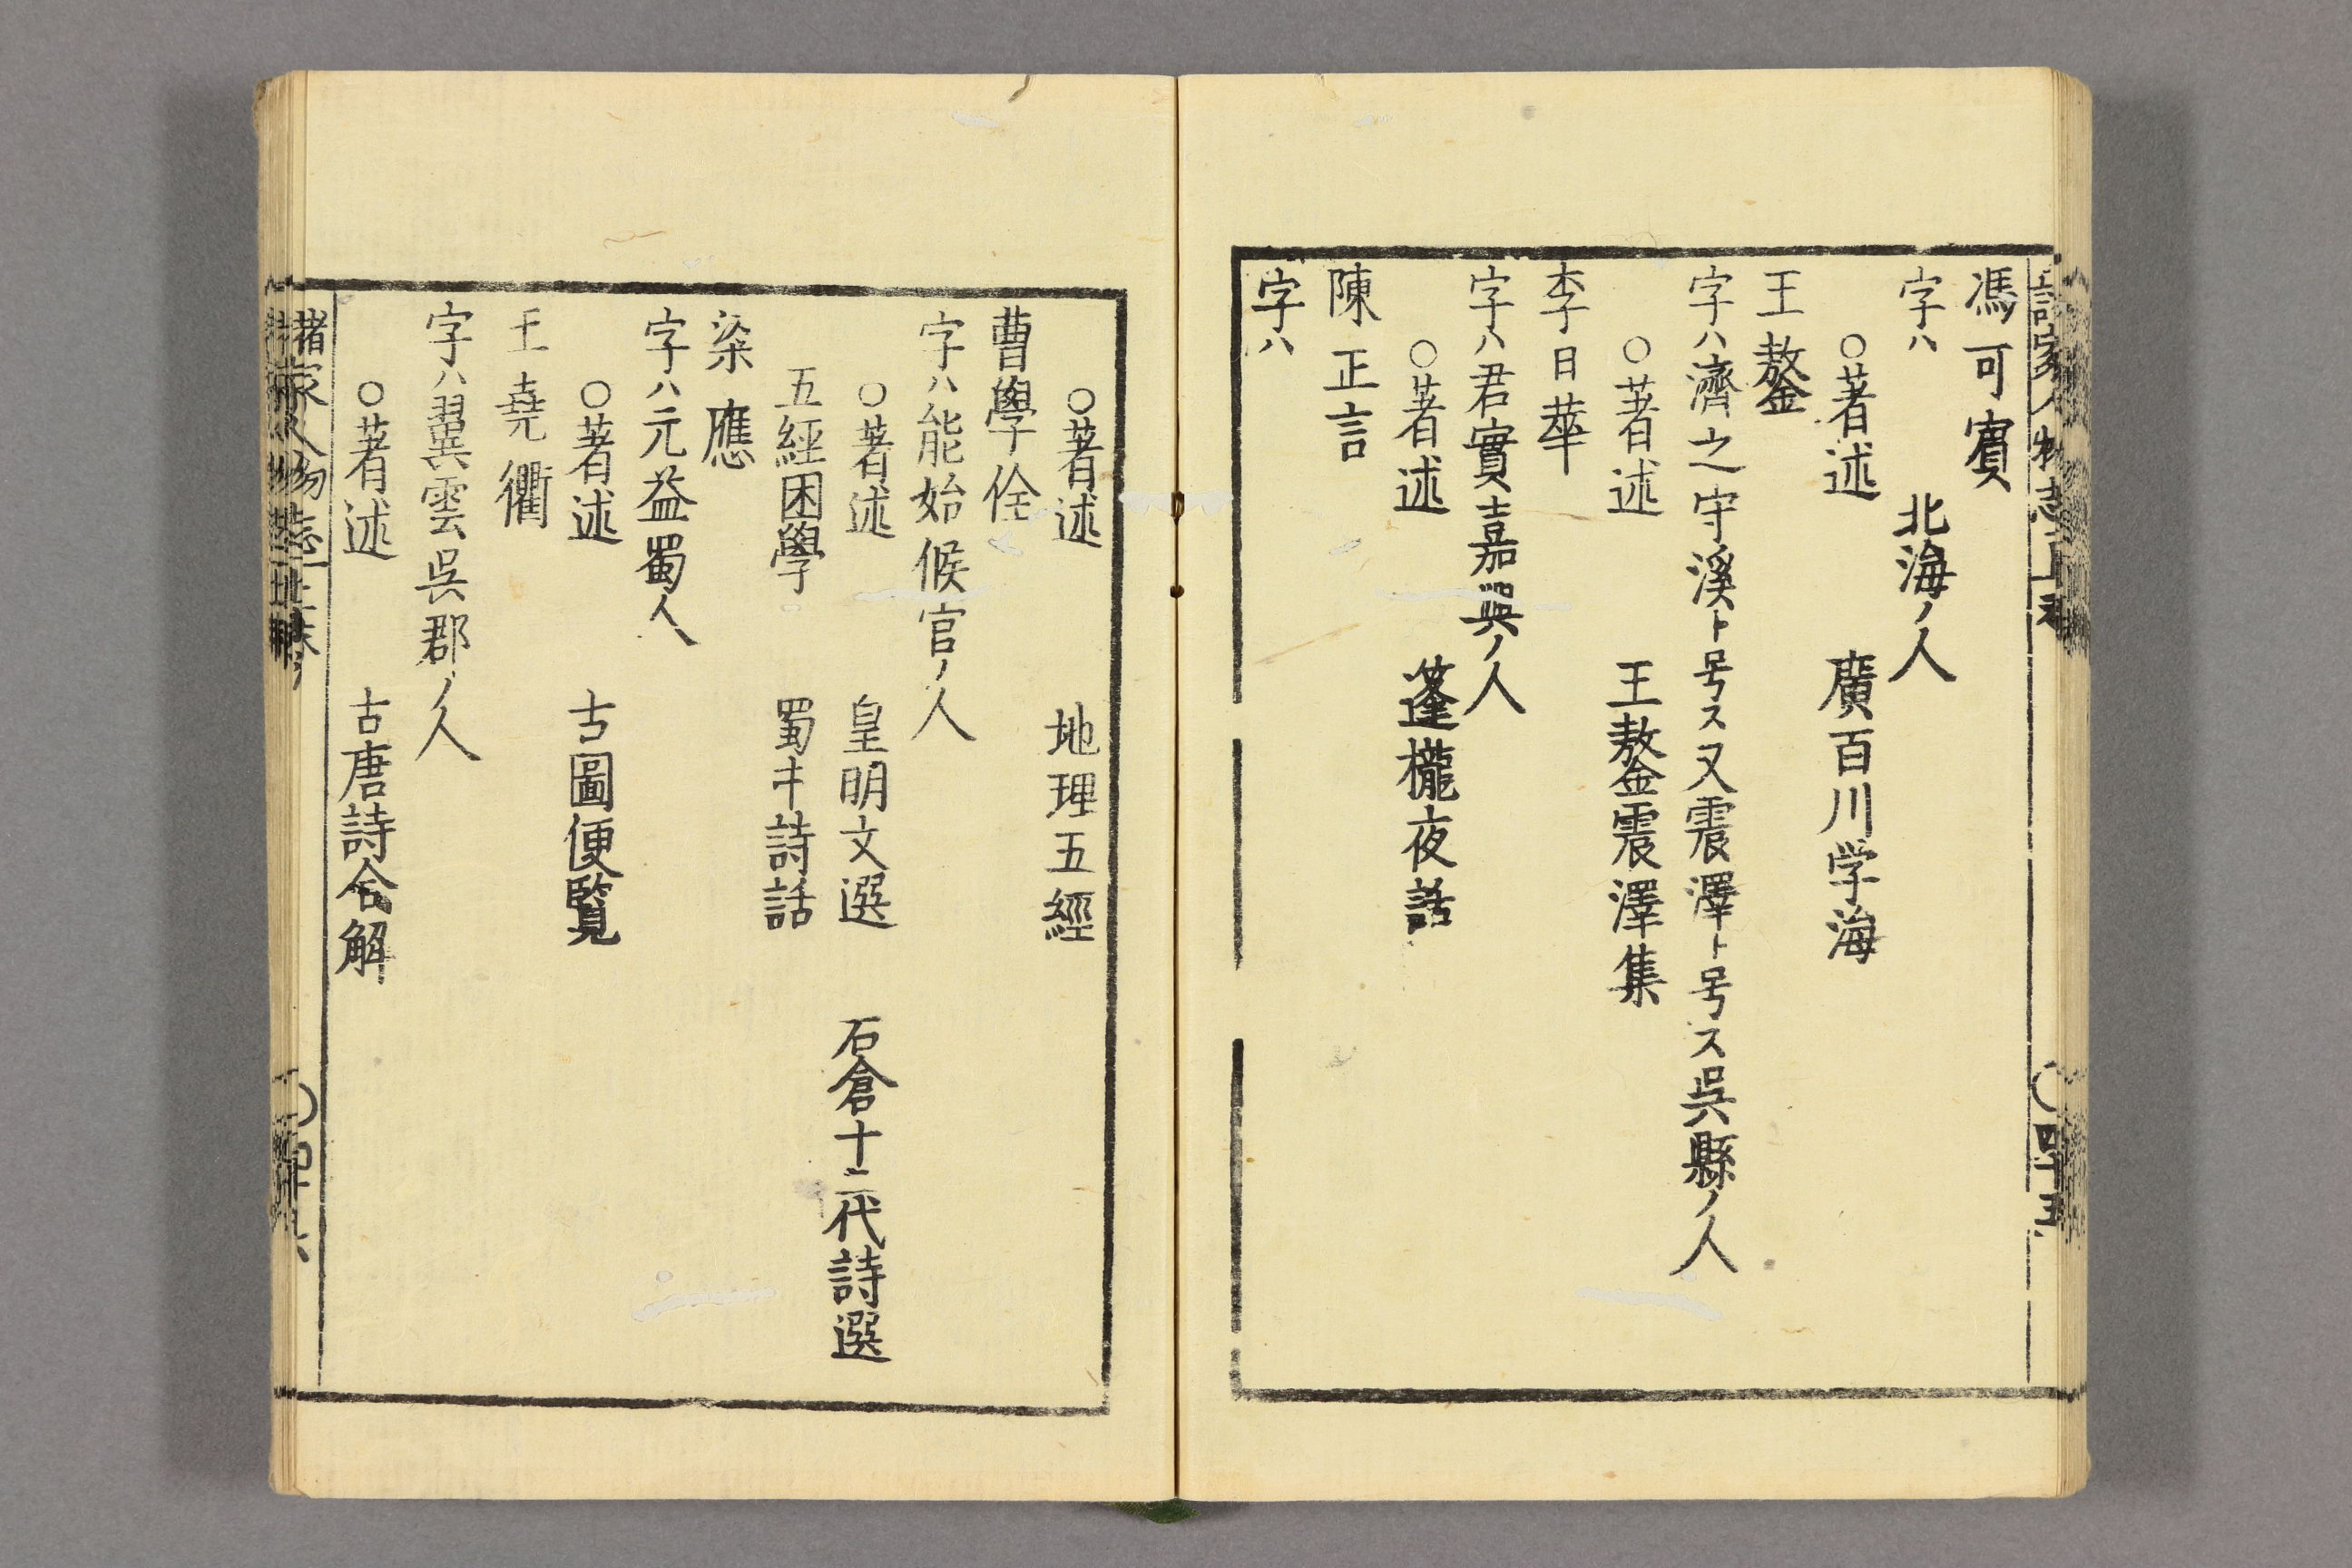 馮可賓
字ハ　北海ノ人
○著述　廣百川学海
王鏊
字ハ濟之守溪ト号ス又震澤ト号ス呉縣ノ人
○著述　王鏊震澤集
李日華
字ハ君實嘉興ノ人
○著述　蓬櫳夜話
陳正言
字ハ
○著述　地理五經
曹學佺
字ハ能始候官ノ人
○著述　皇明文選　石倉十二代詩選
五經困學　蜀中詩話
梁應
字ハ元益蜀人
○著述　古圖便覧
王堯衢
字ハ翼雲呉郡ノ人
○著述　古唐詩合解